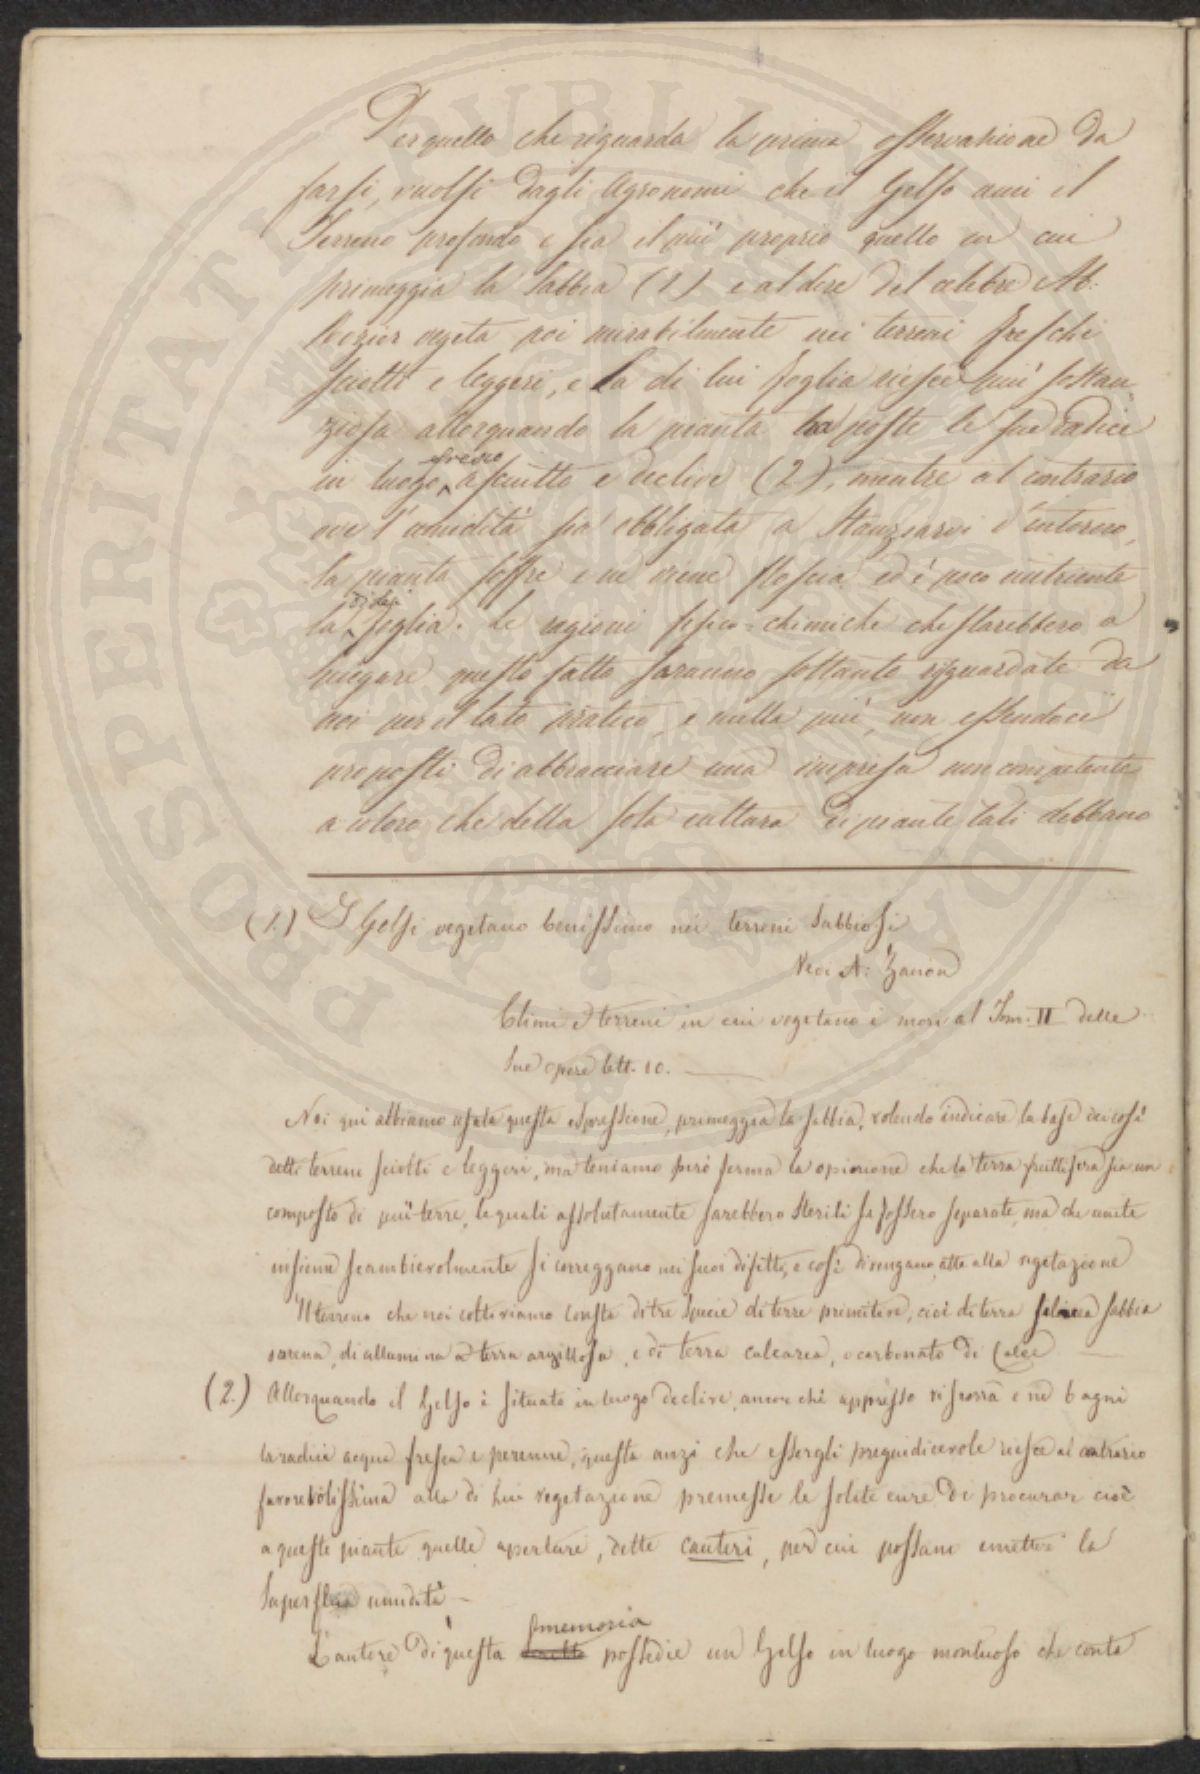 Per quello che riguarda la prima osservazione da
farsi, vuolsi dagli Agronomi che il Gelso ami il
Terreno profondo e sia il più proprio quello in cui
primeggia la Sabbia (1) e al dire del celebre Ab:
Rozier vegeta poi mirabilmente nei terreni freschi
sciolti e leggeri, e la di lui foglia riesce più sostan-
ziosa allorquando la pianta ha poste le sue radici
fresco
in luogo asciutto e declive (2), mentre al contrario
ove l'umidità sia obbligata a Stanziarvi d'intorno,
la pianta soffre e ne viene floscia ed è poco nutriente
di lei
la foglia. Le ragioni fisico-chimiche che starebbero a
spiegare questo fatto saranno soltanto risguardate da
noi per il lato pratico, e nulla più, non essendoci
proposti di abbracciare una impresa non competente
a coloro che della sola cultura di piante tali debbano
(1.) I Gelsi vegetano benissimo nei terreni Sabbiosi
Vedi A: Zanon
Climi e terreni in cui vegetano i mori al Tom. II delle
Sue opere lett. 10.
Noi qui abbiamo usata questa espressione, primeggia la sabbia, volendo indicare la base dei così
detti terreni sciolti e leggeri, ma teniamo però ferma la opinione che la terra fruttifera sia un
composto di più terre, le quali assolutamente sarebbero Sterili se fossero separate, ma che unite
insieme scambievolmente si correggano nei suoi difetti, e così divengano atte alla vegetazione
Il terreno che noi coltiviamo consta di tre Specie di terre primitive, cioè di terra silicea sabbia
o arena, di allumina o terra argillosa, e di terra calcarea, o carbonato di Calce
(2.) Allorquando il Gelso è situato in luogo declive, ancorchè appresso vi scorra e ne bagni
la radice acqua fresca e perenne, questa anzi che essergli pregiudicevole riesce al contrario
favorevolissima alla di lui vegetazione premesse le solite cure di procurar cioè
a queste piante quelle aperture, dette cauteri, per cui possano emettere la
Superflua umidità
memoria
L'autore di questa possedie un Gelso in luogo montuoso che conta
PROSPERITATI PVBLICAE